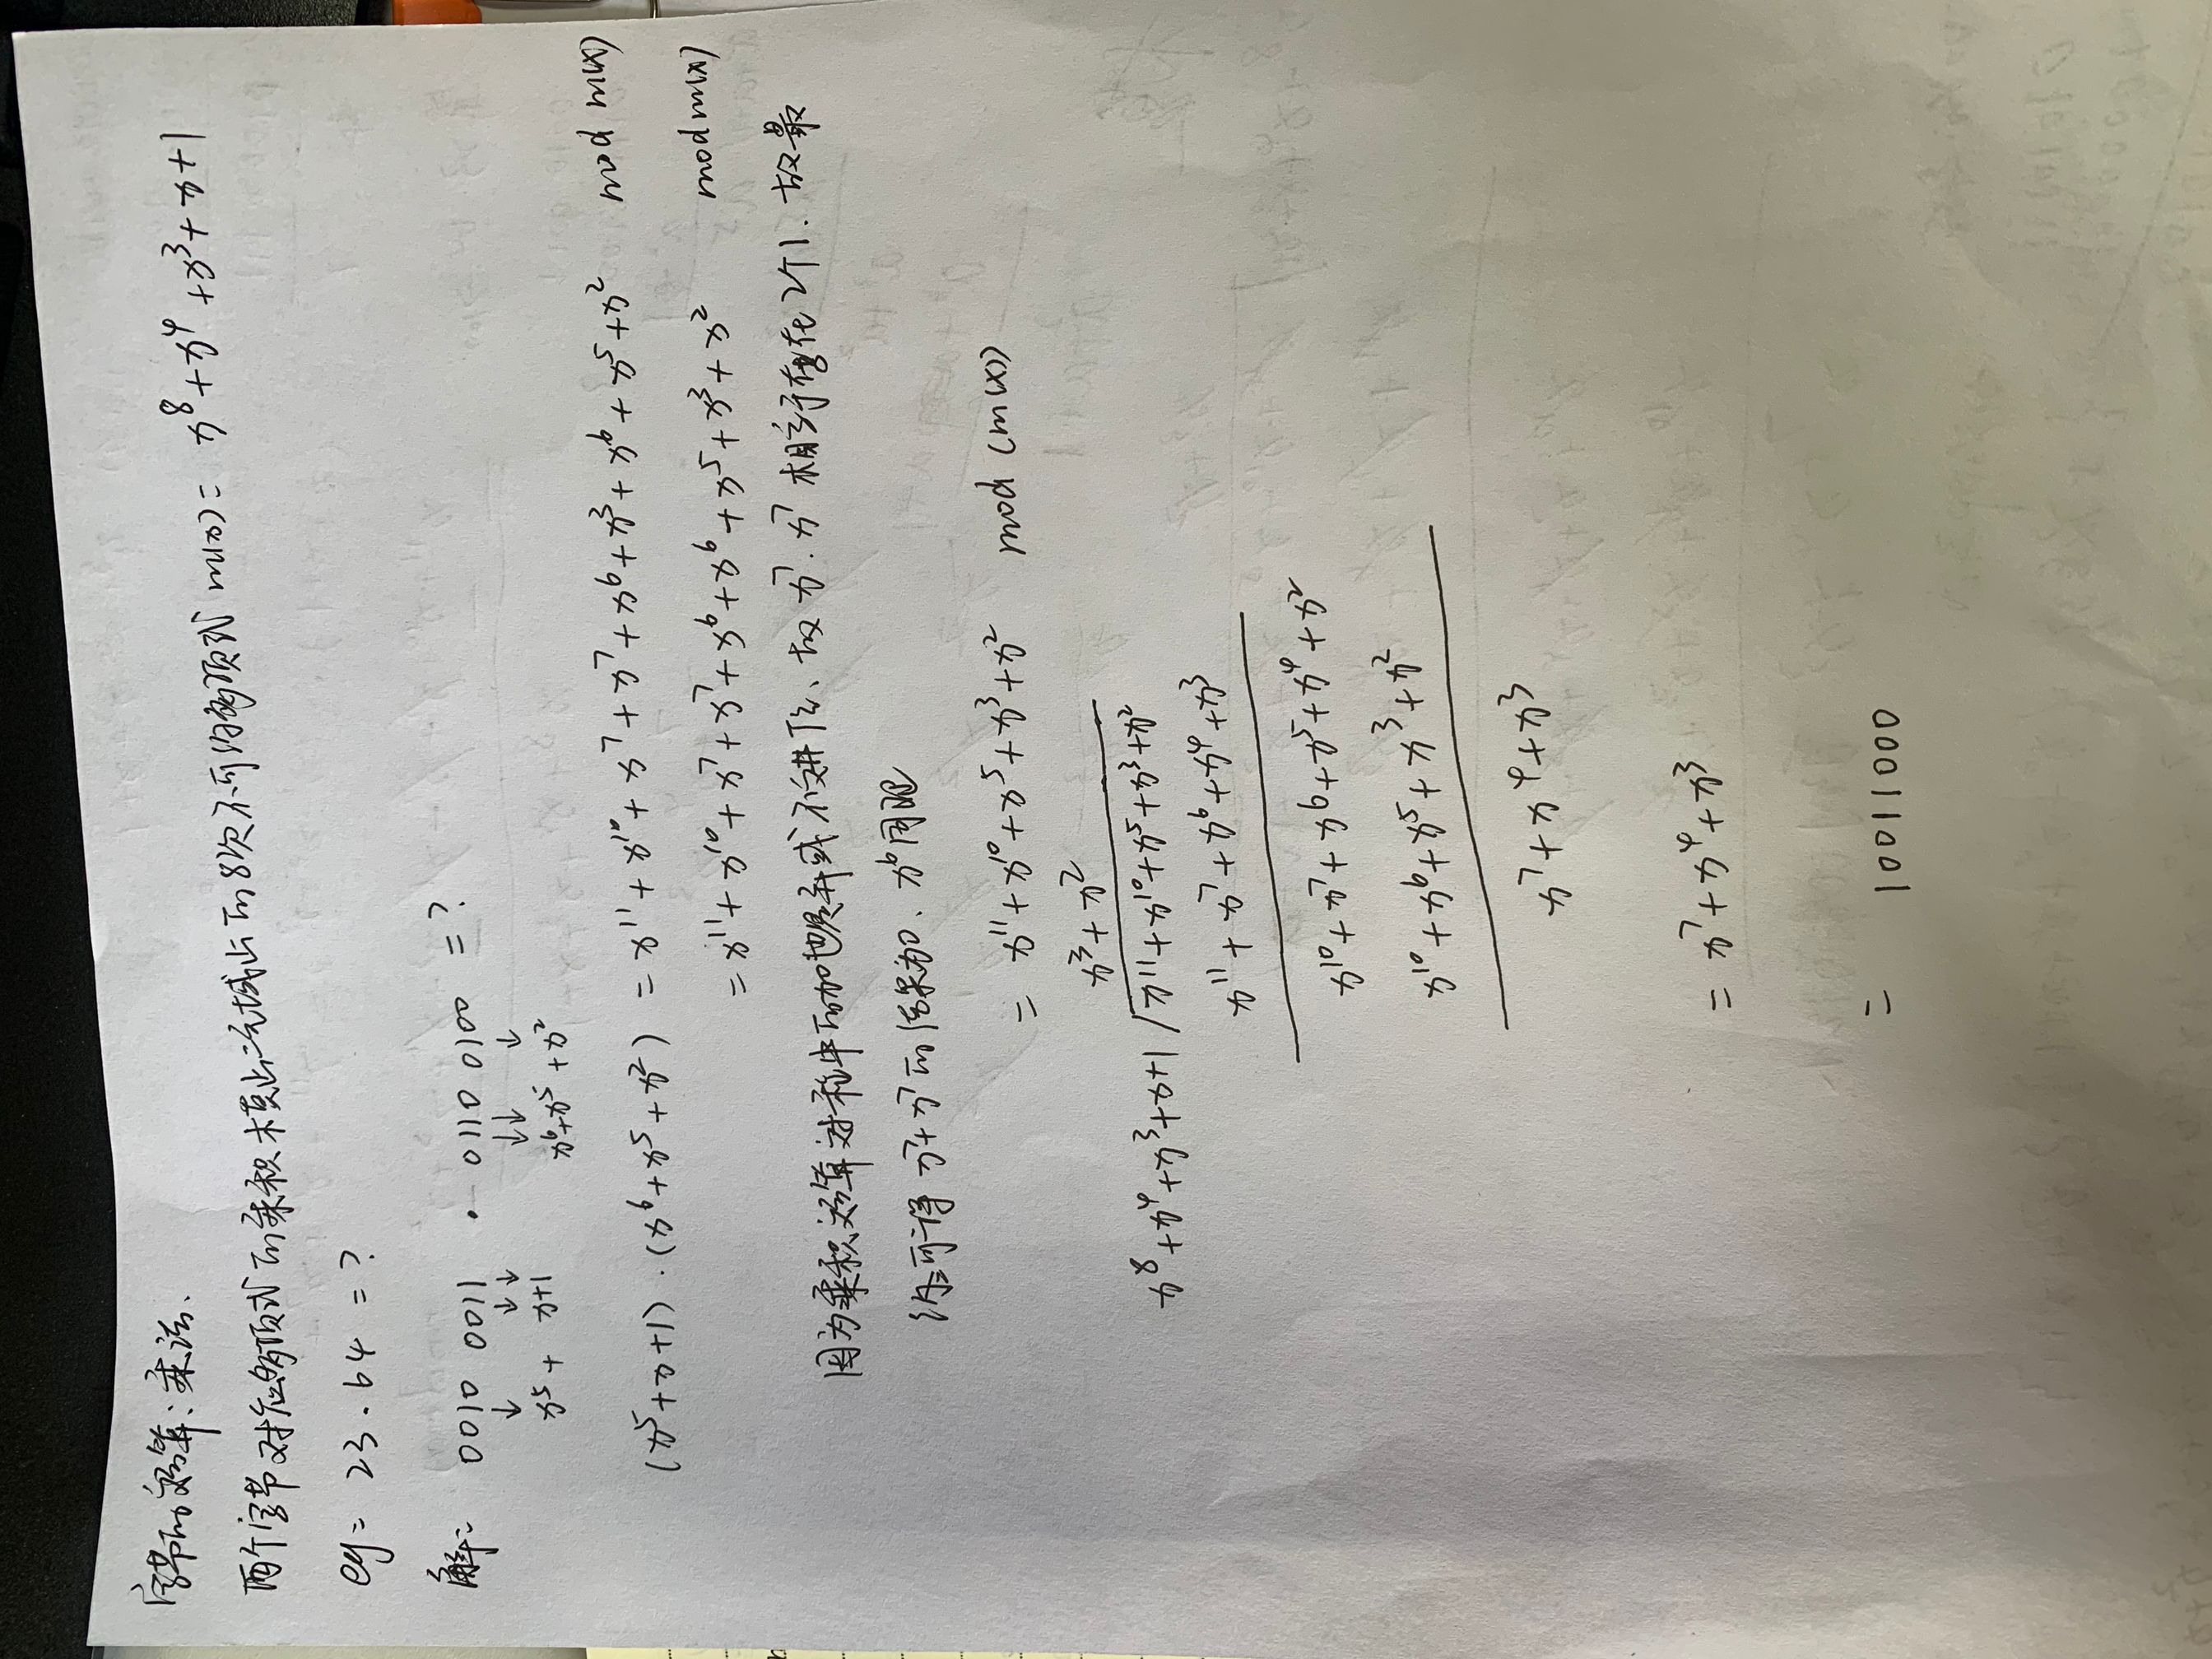 字节的运算:乘法.
两个字节对应多项式的乘积模上域上的8次不可约多项式 m(x) = x⁸+x⁴+x³+x+1
eg = 23 · 64 = ?
解: 0010 0011 · 0110 0100 = ?
↓ ↓ ↓ ↓↓ ↓
x⁵+ x+1 x⁶+x⁵ +x²
(x⁵+x+1)·(x⁶+x⁵+x²) = x¹¹+x¹⁰+x⁷+x⁷+x⁶+x³+x⁶+x⁵+x² mod m(x)
= x¹¹+x¹⁰+x⁷+x⁷+x⁶+x⁶+x⁵+x³+x² mod m(x)
因为乘积运算过程中的加也是异或不进位、故 x⁷.x⁷ 相当于存在2个1.故最
终可得 x⁷+x⁷的结果为0、x⁶同理
= x¹¹+x¹⁰+x⁵+x³+x² mod (m(x))
x³+x²
x⁸+x⁴+x³+x+1 / x¹¹+x¹⁰+x⁵+x³+x²
x¹¹+x⁷+x⁶+x⁴+x³
x¹⁰+x⁷+x⁶+x⁵+x⁴+x²
x¹⁰+x⁶+x⁵+x³+x²
x⁷+x⁴+x³
= x⁷+x⁴+x³
= 10011000